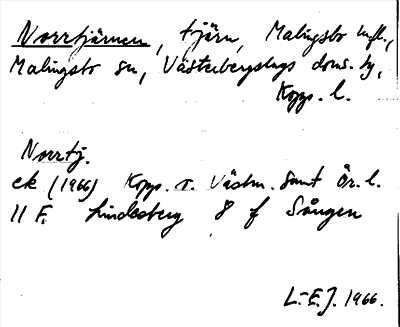 Norrtjärnen, tjärn, Malingsbo kpfl.,
Malingsbo sn, Västerbergslags doms. by,
Kopp. l.
Norrtj.
ek (1966) Kopp. o. Västm. samt Ör. l.
11 F. Lindesberg 8 f Sången
L.-E.J. 1966.